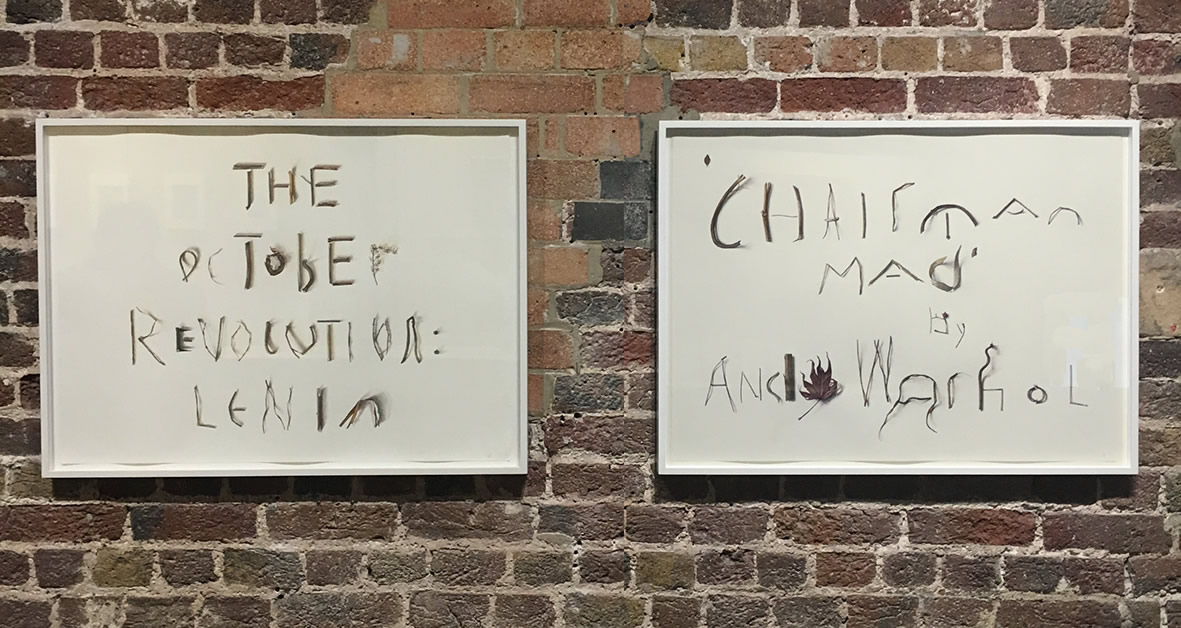 THE
ocTobEr
REVOLUTION:
LENIn
'CHAIrmAn
MAO'
by
AndY WarhoL